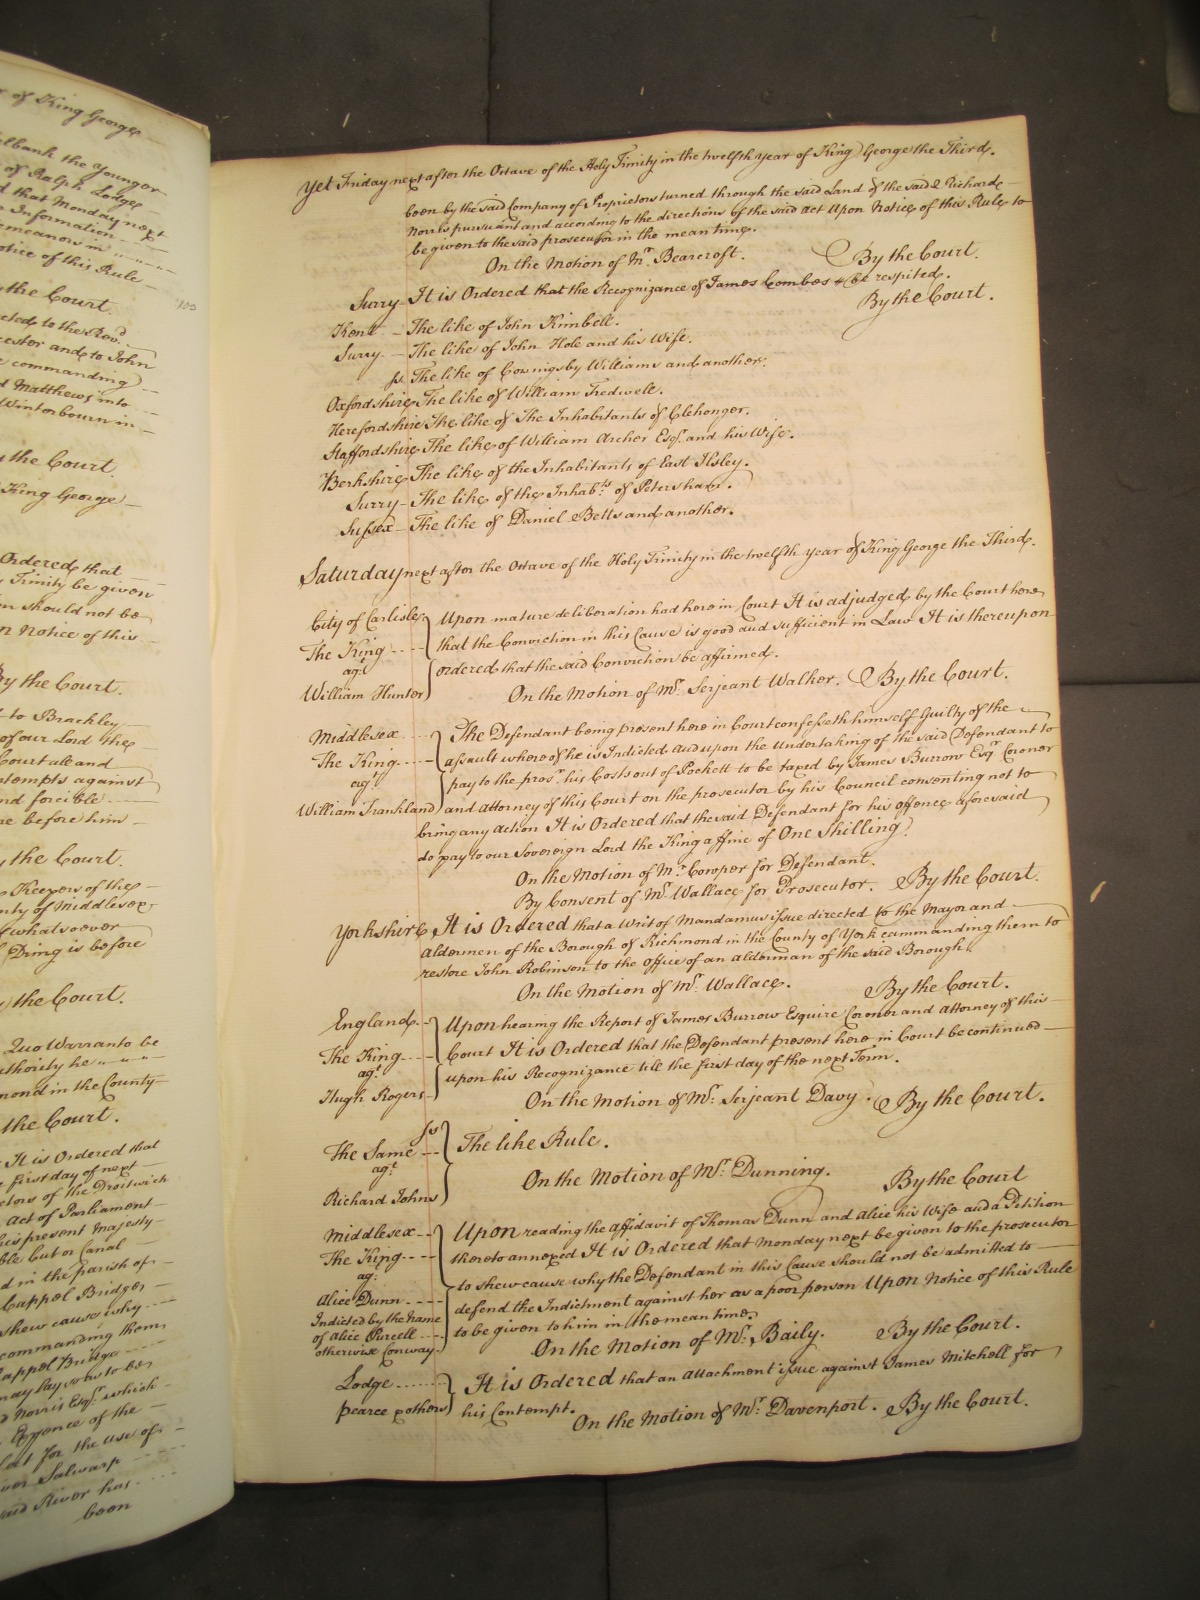 of King George
the Younger
of Ralph Lodge
that Monday next
Information
notice of this Rule
the Court.
to the Rev.d
and to John
commanding
Matthews into
Winterbourn in
the Court
King George
Ordered that
Trinity be given
should not be
Notice of this
By the Court.
to Brackley
of our Lord the
Court all and
against
and forcible
before him
the Court.
Keeper of the
of Middlesex
whatsoever
Dring is before
the Court.
Quo Warranto be
authority he
in the County
the Court.
It is Ordered that
first day of next
of the Droitwich
act of Parliament
his present Majesty
Cut or Canal
in the parish of
Cappel Bridge
shew cause why
commanding them
Cappel Bridge
may lay
Norris Esq.r which
Expence of the
for the use of
Salwarp
said River has
been
Yet Friday next after the Octave of the Holy Trinity in the twelfth year of King George the Third.
been by the said Company of Proprietors turned through the said Land of the said Richard
Norris pursuant and according to the directions of the said Act Upon Notice of this Rule to
be given to the said prosecutor in the mean time.
On the Motion of Mr. Bearcroft. By the Court.
Surry It is Ordered that the Recognizance of James Combes be respited.
By the Court.
Kent The like of John Kimbell.
Surry The like of John Hole and his Wife.
ss. The like of Coningsby Williams and another.
Oxfordshire The like of William Tredwell.
Herefordshire The like of The Inhabitants of Clehonger.
Staffordshire The like of William Archer Esq.r and his Wife.
Berkshire The like of the Inhabitants of East Ilsley.
Surry The like of the Inhab.ts of Petersham.
Sussex The like of Daniel Betts and another.
Saturday next after the Octave of the Holy Trinity in the twelfth year of King George the Third.
City of Carlisle Upon mature deliberation had here in Court It is adjudged by the Court here
The King that the Conviction in this Cause is good and sufficient in Law It is thereupon
ag.t ordered that the said Conviction be affirmed.
William Hunter On the Motion of Mr. Serjeant Walker. By the Court.
Middlesex The Defendant being present here in Court confesseth himself Guilty of the
The King assault whereof he is Indicted And upon the undertaking of the said Defendant to
ag.t pay to the pros.r his Costs out of Pockett to be taxed by James Burrow Esq.r Coroner
William Frankland and Attorney of this Court on the prosecutor by his Council consenting not to
bring any action It is Ordered that the said Defendant for his offence aforesaid
do pay to our Sovereign Lord the King a ffine of One Shilling.
On the Motion of Mr. Comper for Defendant.
By Consent of Mr. Wallace for Prosecutor. By the Court.
Yorkshire It is Ordered that a Writ of Mandamus issue directed to the Mayor and
Aldermen of the Borough of Richmond in the County of York commanding them to
restore John Robinson to the office of an alderman of the said Borough.
On the Motion of Mr. Wallace. By the Court.
England Upon hearing the Report of James Burrow Esquire Coroner and Attorney of this
The King Court It is Ordered that the Defendant present here in Court be continued
ag.t upon his Recognizance till the first day of the next Term.
Hugh Rogers On the Motion of Mr. Serjeant Davy. By the Court.
ss
The Same The like Rule.
ag.t
Richard Johns On the Motion of Mr. Dunning. By the Court
Middlesex Upon reading the affidavit of Thomas Dunn and Alice his Wife and a Petition
The King thereto annexed It is Ordered that Monday next be given to the prosecutor
ag.t to shew cause why the Defendant in this Cause should not be admitted to
Alice Dunn defend the Indictment against her as a poor person Upon Notice of this Rule
Indicted by the name to be given to him in the mean time.
of Alice Purcell On the Motion of Mr. Baily. By the Court.
otherwise Conway
Lodge It is Ordered that an attachment issue against James Mitchell for
Pearce & others his Contempt.
On the Motion of Mr. Davenport. By the Court.